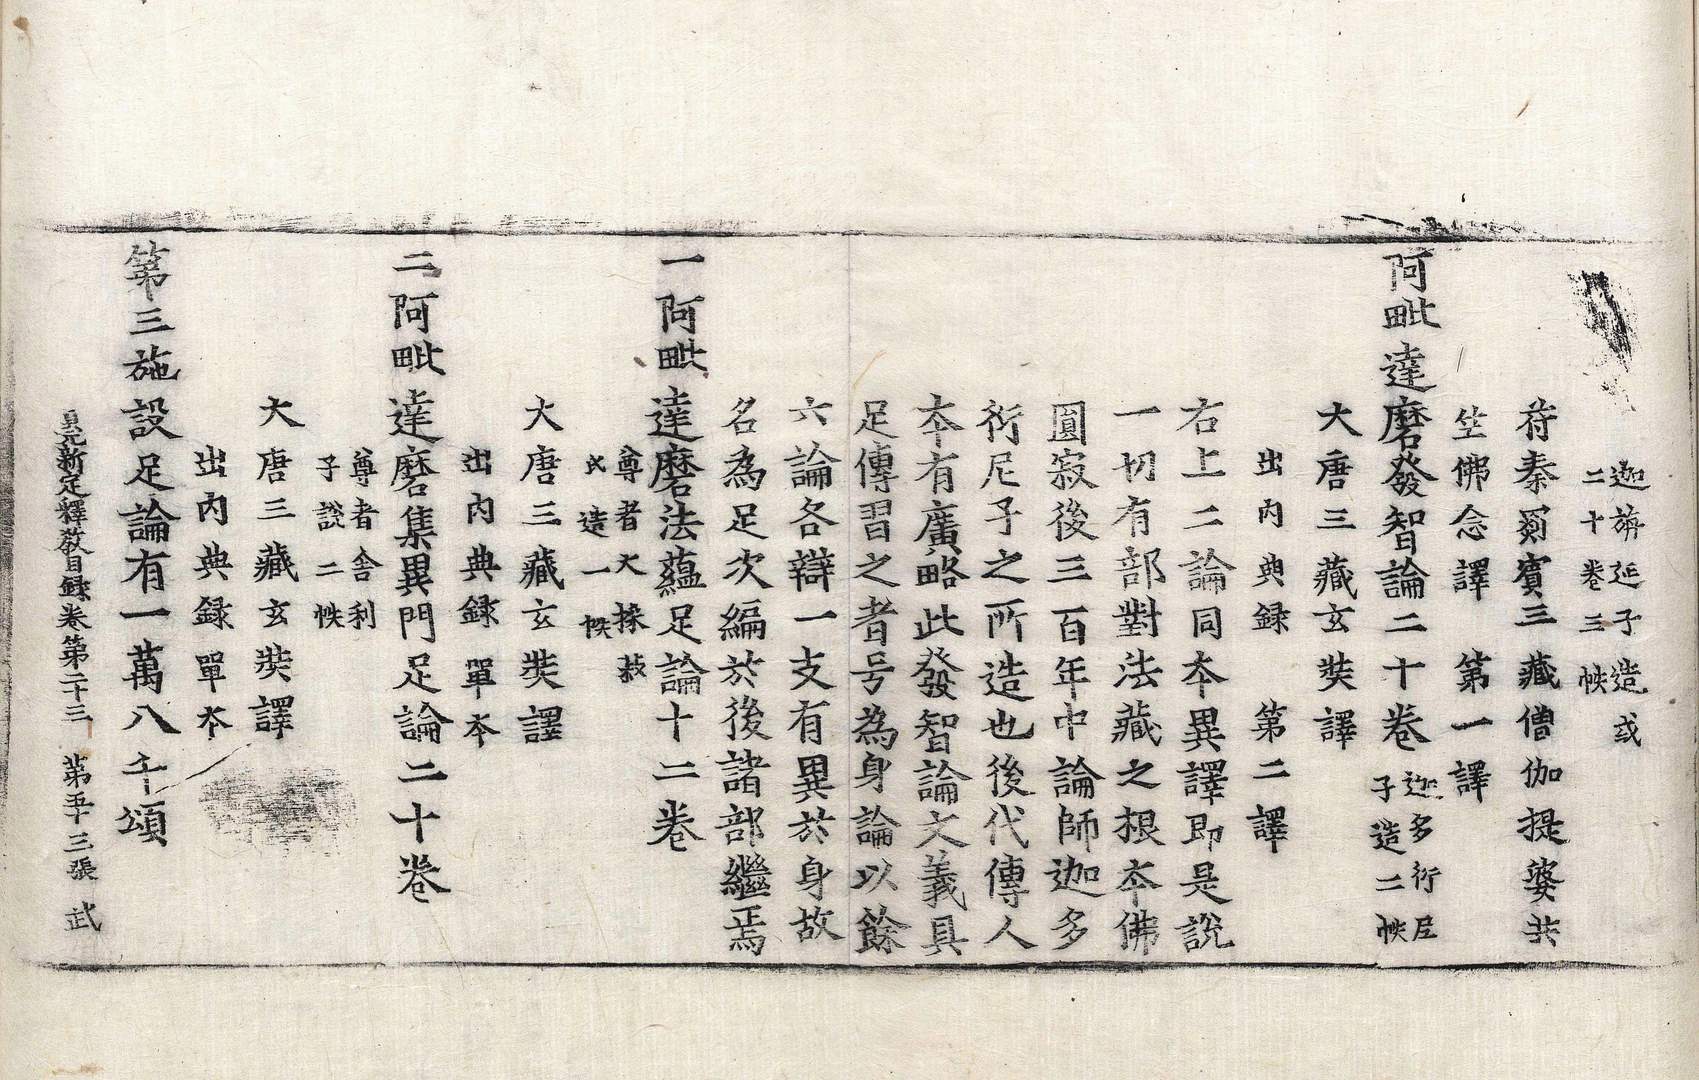 迦旃延子造或
二十卷三帙
苻秦罽賓三藏僧伽提婆共
竺佛念譯　第一譯
阿毗達磨發智論二十卷 迦多衍尼
子造二帙
大唐三藏玄奘譯
出內典録　第二譯
右上二論同夲異譯即是說
一切有部對法藏之根夲佛
圓寂後三百年中論師迦多
衍尼子之所造也後代傳人
夲有廣略此發智論文義具
足傳習之者号為身論以餘
六論各辯一支有異於身故
名為足次編於後諸部繼焉
一阿毗達磨法蘊足論十二卷
尊者大採菽
氏造一帙
大唐三藏玄奘譯
出內典録單夲
二阿毗達磨集異門足論二十卷
尊者舍利
子說二帙
大唐三藏玄奘譯
出內典録單夲
第三施設足論有一萬八千頌
貞元新定釋教目録卷第二十三　第五十三張　武